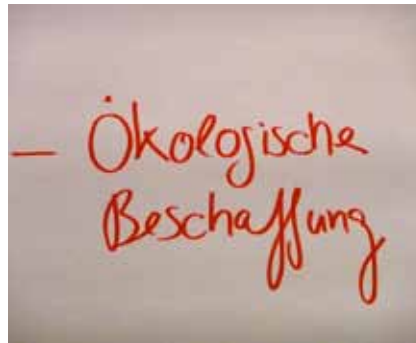 – Ökologische
Beschaffung